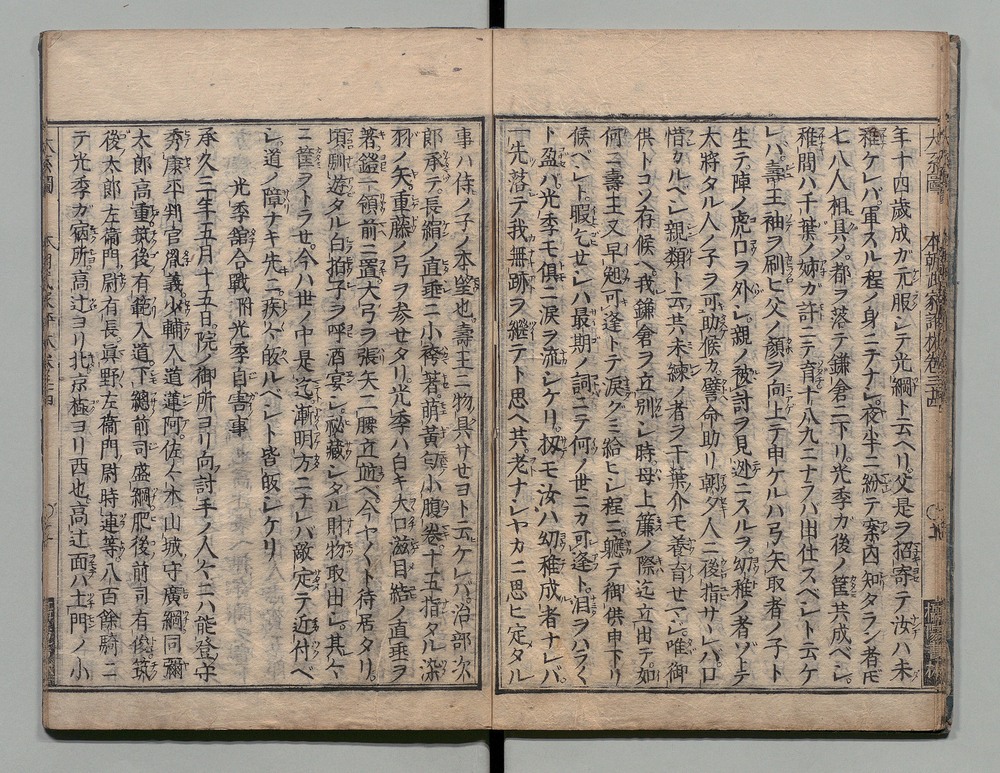 年十四歳成ガ元服シテ光綱ト云ヘリ。父是ヲ招寄テ汝ハ未
稚ケレバ軍スル程ノ身ニテナシ。夜半ニ紛テ案内知タラン者𪜈
七八人相具メ都ヲ落テ鎌倉ニ下リ。光季ガ後ノ筐共成ベシ。
稚間ハ千葉ノ姉ガ許ニテ育十八九ニナラハ出仕スベシト云ケ
レハ。壽王袖ヲ刷ヒ父ノ顔ヲ向上テ申ケルハ弓矢取者ノ子ト
生テ陣ノ虎口ヲ外シ。親ノ被討ヲ見迯ニスルヲ。幼稚ノ者ゾ上テ
大將タル人ノ子ヲ可助候カ。譬命助リ朝夕人ニ後指サヽレハ口
惜カルベシ親類ト云共未練ノ者ヲ千葉介モ養育セマシ唯御
供トコソ存候ヘ。我鎌倉ヲ立別シ時母上簾ノ際迄立出テ。如
何ニ壽王又早起可逢トテ涙グミ給ヒシ程ニ。軈テ御供申下リ
候ベシト。暇乞セシハ最期ノ詞ニテ何ノ世ニカ可逢ト。泪ヲハラ〱
ト盈ハ。光季モ俱ニ涙ヲ流シケリ。扨モ汝ハ幼稚成者ナレバ
一先落テ我無跡ヲ継テト思ヘ共。老ナシヤカニ思ヒ定タル
事ハ侍ノ子ノ本望也。壽王ニ物具サセヨト云ケレバ。治部次
郎承テ。長絹ノ直垂ニ小袴著。萌黄匂小腹卷十五指タル染
羽ノ矢。重藤ノ弓ヲ参セタリ。光季ハ白キ大口滋目結ノ直垂ヲ
著。鎧一領前ニ置大弓ヲ張矢二腰立並ヘ。今ヤ〱ト待居タリ。
頃馴遊タル白拍子ヲ呼酒宴シ。祕藏シタル財物取出シ。其々
ニ筐ヲトラセ。今ハ世ノ中是迄漸明方ニナレバ敵定テ近付ベ
シ道ノ障ナキ先ニ疾々皈ルベシト皆皈シケリ
光季舘合戰附光季自害事
承久三年五月十五日。院ノ御所ヨリ向討手ノ人々ニハ能登守
秀康平判官胤義少輔入道蓮阿佐々木山城守廣綱同彌
太郎高重。筑後有範入道。下總前司盛綱肥後前司有俊筑
後太郎左衞門尉有長。眞野左衞門尉時連等。八百餘騎ニ
テ光季ガ宿所。高辻ヨリ北京極ヨリ西也。高辻面ハ土門ノ小